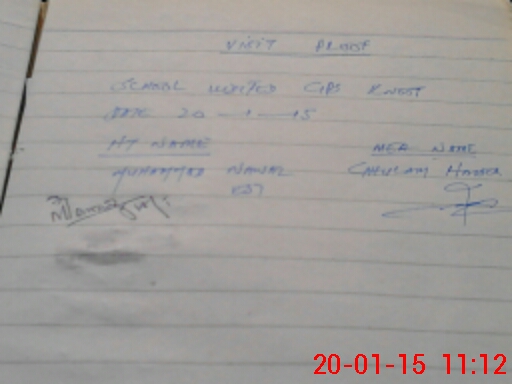 VISIT PROOF
SCHOOL VISITED GPS
DATE 20-1-15
HT NAME MEA NAME
MUHAMMAD NAWAZ GHULAM HAIDER
20-01-15 11:12